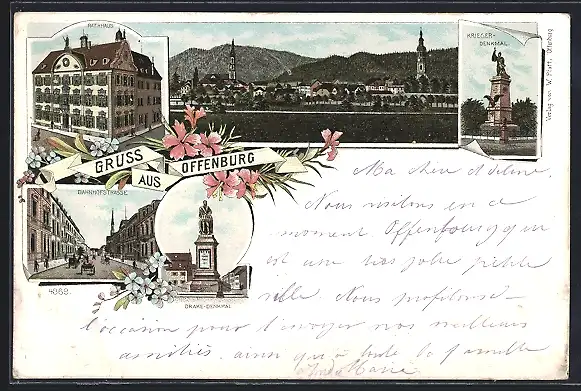 RATHHAUS
KRIEGER-
DENKMAL.
Verlag von W. Platt, Offenburg
GRUSS
AUS
OFFENBURG
BAHNHOFSTRASSE
4868.
DRAKE-DENKMAL
Ma chère Adeline.
Nous visitons en ce
moment. Offenbourg qui
est une très jolie petite
ville. Nous profitons de
l'occasion pour t'envoyer nos meilleurs
amitiés, ainsi qu'à toute la famille
Marie